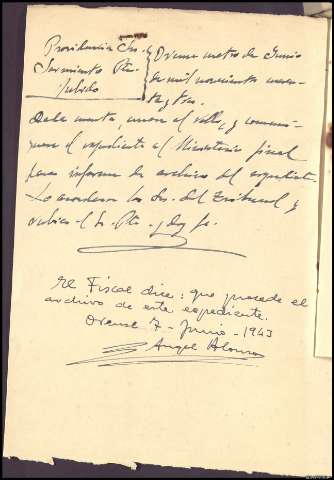 Providencia Sres.
Sarmiento Pte.
Pubido
Orense cuatro de Junio
de mil novecientos cuaren-
ta y tres.
Dada cuenta, unase el rollo, y comuni-
quese el expediente al Ministerio fiscal
para informe de archivo del expediente.
Lo acordaron los Sres. del Tribunal y
rubrica el Sr. Pte. y doy fe.
El Fiscal dice: que procede el
archivo de este expediente.
Orense 7 - Junio - 1943
Angel Alonso